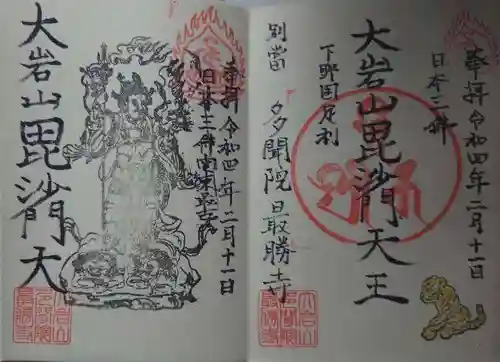 奉拝 令和四年二月十一日
日本三躰
大岩山毘沙門天王
下野国足利
別當 多聞院最勝寺
奉拝 令和四年二月十一日
日本三躰関東最古
大岩山毘沙門天